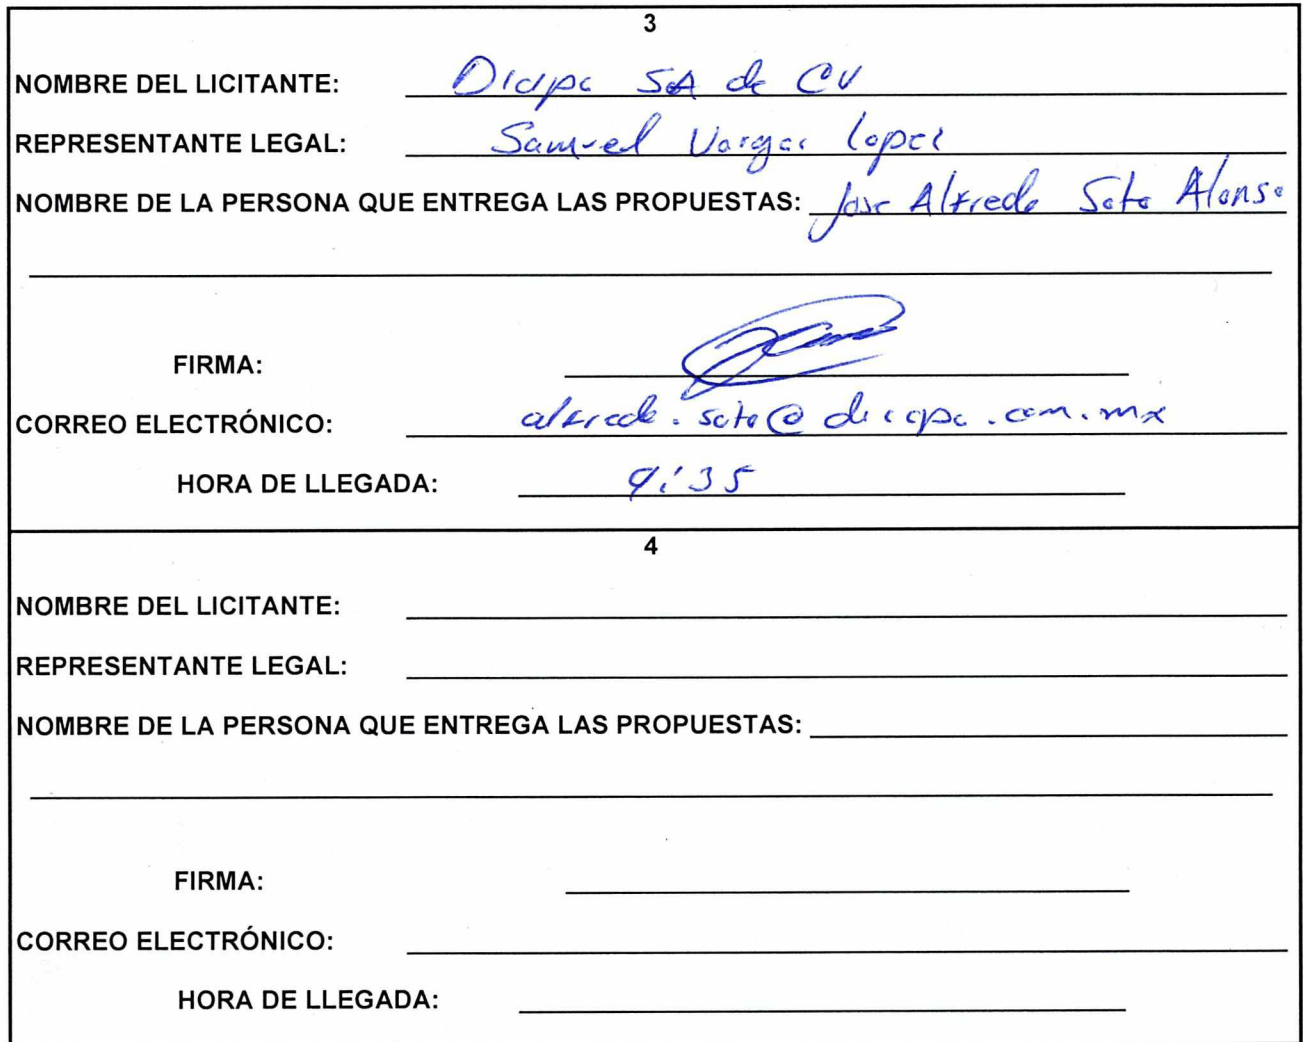 3
NOMBRE DEL LICITANTE: Diapa SA de CV
REPRESENTANTE LEGAL: Samuel Vargas Lopez
NOMBRE DE LA PERSONA QUE ENTREGA LAS PROPUESTAS: Jose Alfredo Soto Alonso
FIRMA:
CORREO ELECTRÓNICO: alfredo.soto@dicapa.com.mx
HORA DE LLEGADA: 9:35
4
NOMBRE DEL LICITANTE:
REPRESENTANTE LEGAL:
NOMBRE DE LA PERSONA QUE ENTREGA LAS PROPUESTAS:
FIRMA:
CORREO ELECTRÓNICO:
HORA DE LLEGADA: